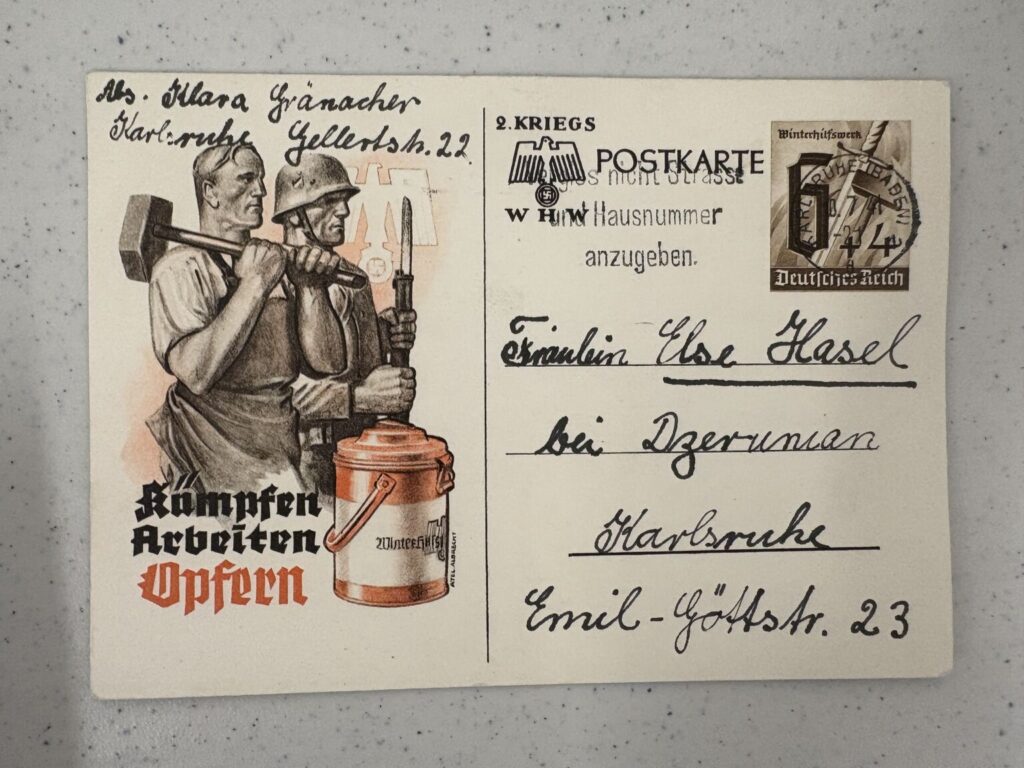 Abs. Klara Gränacher
Karlsruhe Gellertstr. 22
Kämpfen
Arbeiten
Opfern
Winterhilfs
ATEL. ALBRECHT
2. KRIEGS
POSTKARTE
WHW
nicht Strasse
und Hausnummer
anzugeben.
Winterhilfswerk
6+4
Deutsches Reich
KARLSRUHE (BADEN)
Fräulein Else Hasel
bei Dzerunian
Karlsruhe
Emil-Göttstr. 23